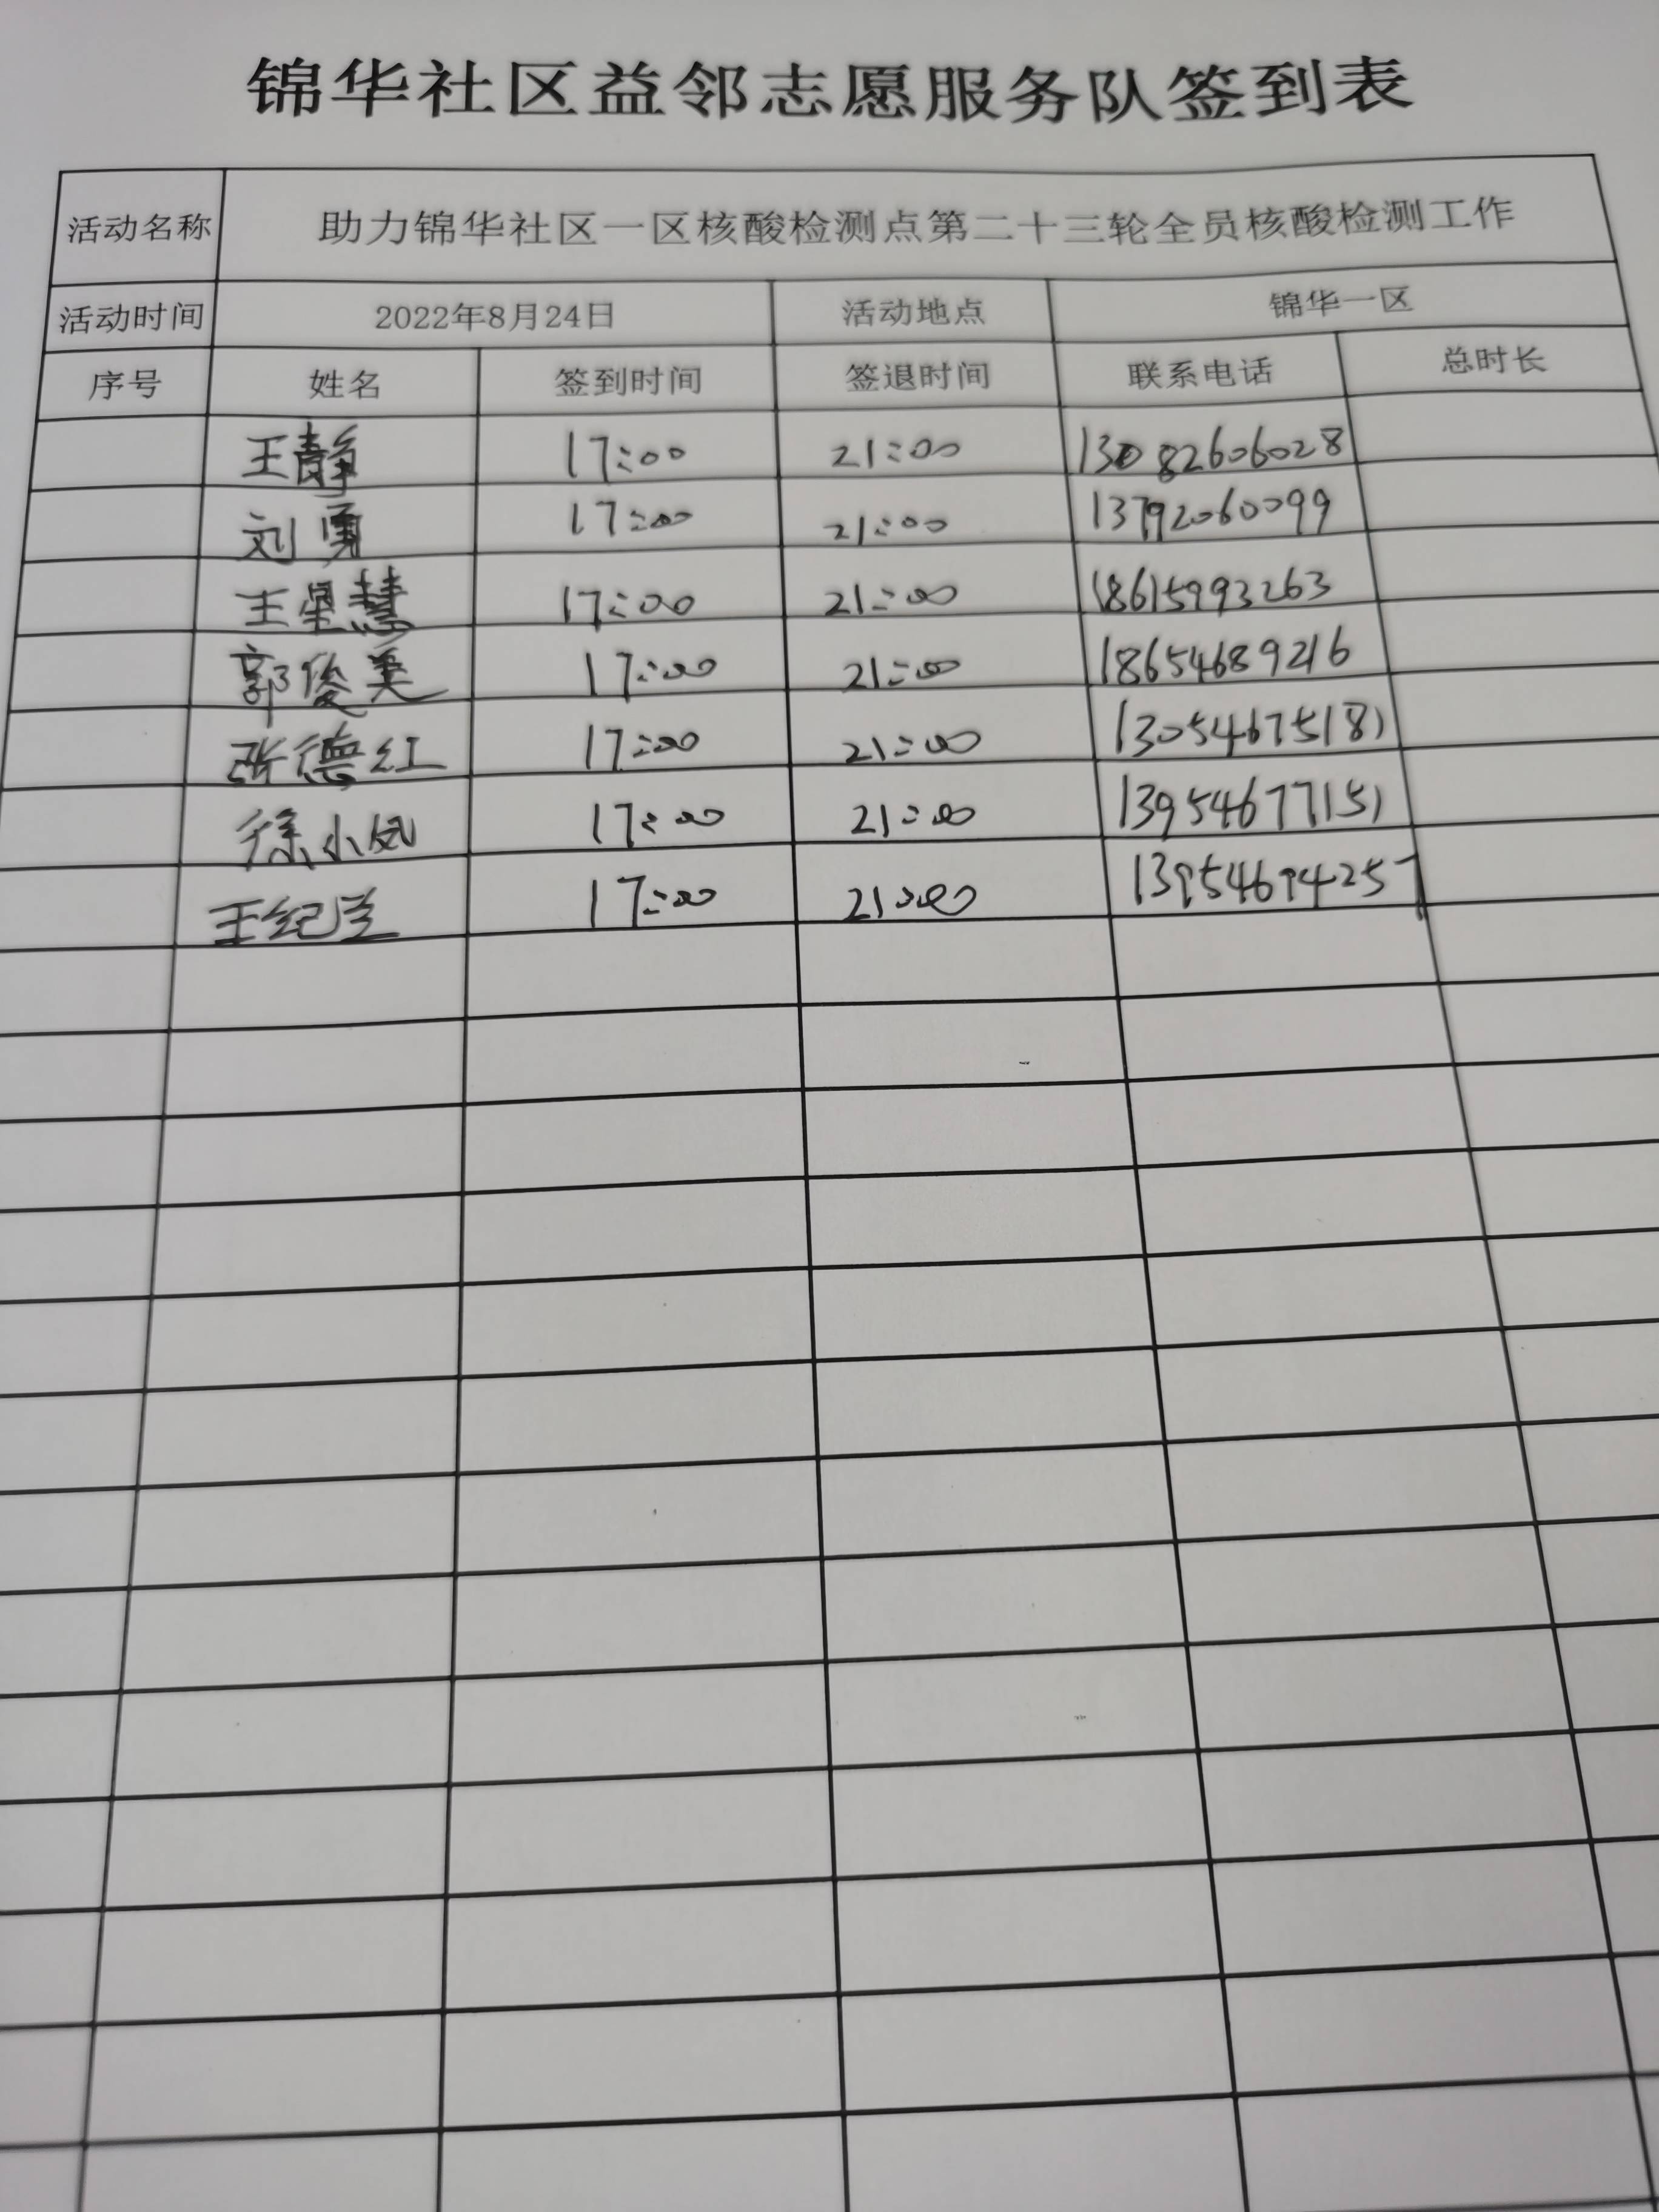 锦华社区益邻志愿服务队签到表
活动名称 助力锦华社区一区核酸检测点第二十三轮全员核酸检测工作
活动时间 2022年8月24日 活动地点 锦华一区
序号 姓名 签到时间 签退时间 联系电话 总时长
王静 17:00 21:00 13082606028
刘勇 17:00 21:00 13792060099
王星慧 17:00 21:00 18615993263
郭俊美 17:00 21:00 18654689216
张德红 17:00 21:00 13054675181
徐小凤 17:00 21:00 13954677151
王纪兰 17:00 21:00 13954694257